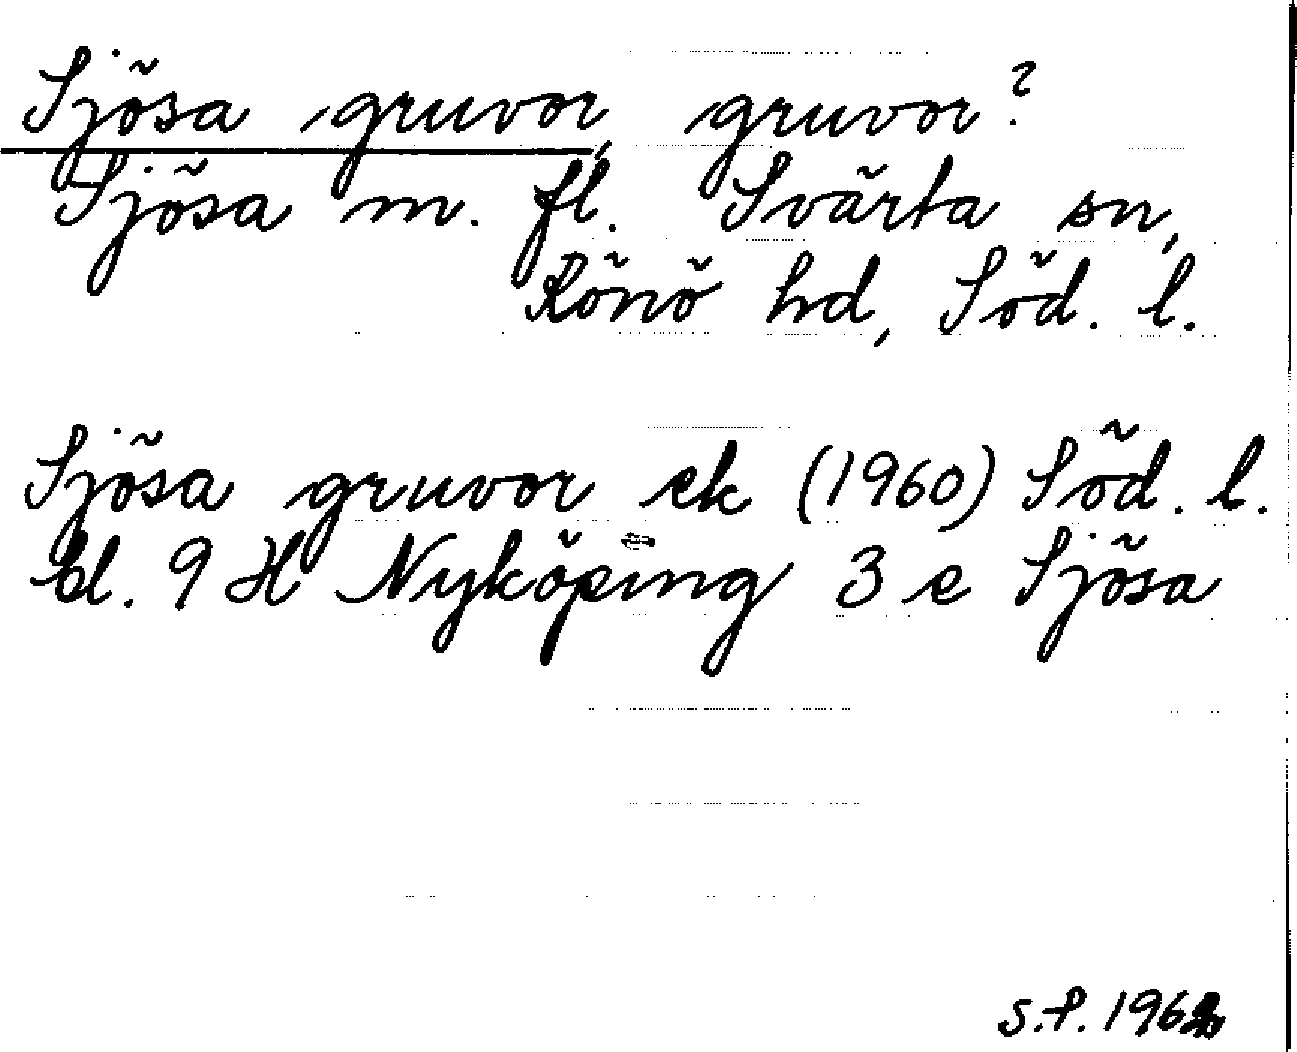 Sjösa gruvor, gruvor?
Sjösa m. fl. Svärta sn,
Rönö hd, Söd. l.
Sjösa gruvor ek (1960) Söd. l.
bl. 9 H Nyköping 3 e Sjösa
S.P.